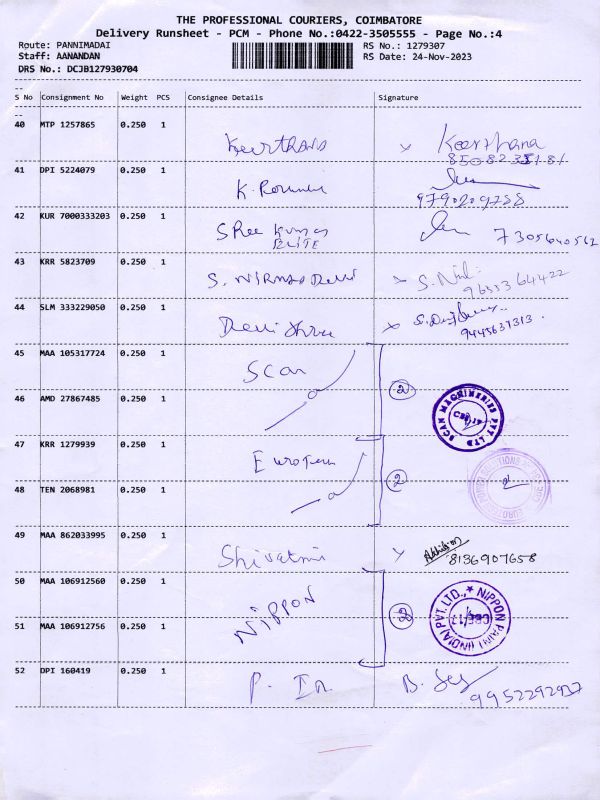 THE PROFESSIONAL COURIERS, COIMBATORE
Delivery Runsheet - PCM - Phone No.:0422-3505555 - Page No.:4
Route: PANNIMADAI RS No.: 1279307
Staff: AANANDAN RS Date: 24-Nov-2023
DRS No.: DCJB127930704
S No Consignment No Weight PCS Consignee Details Signature
40 MTP 1257865 0.250 1 Keerthana
Keerthana
41 DPI 5224079 0.250 1
9790209788
42 KUR 7000333203 0.250 1 Sree Kumar
ELITE 7305640562
43 KRR 5823709 0.250 1 S. NIRMAla Devi
9655364422
44 SLM 333229050 0.250 1
9445637313
45 MAA 105317724 0.250 1 Scan
46 AMD 27867485 0.250 1 2
SCAN MACHINERIES PVT LTD
47 KRR 1279939 0.250 1
48 TEN 2068981 0.250 1 2
49 MAA 862033995 0.250 1
8136907658
50 MAA 106912560 0.250 1 NIPPON
51 MAA 106912756 0.250 1 2
NIPPON PAINT (INDIA) PVT. LTD.,
CBE-17
52 DPI 160419 0.250 1
9952292937